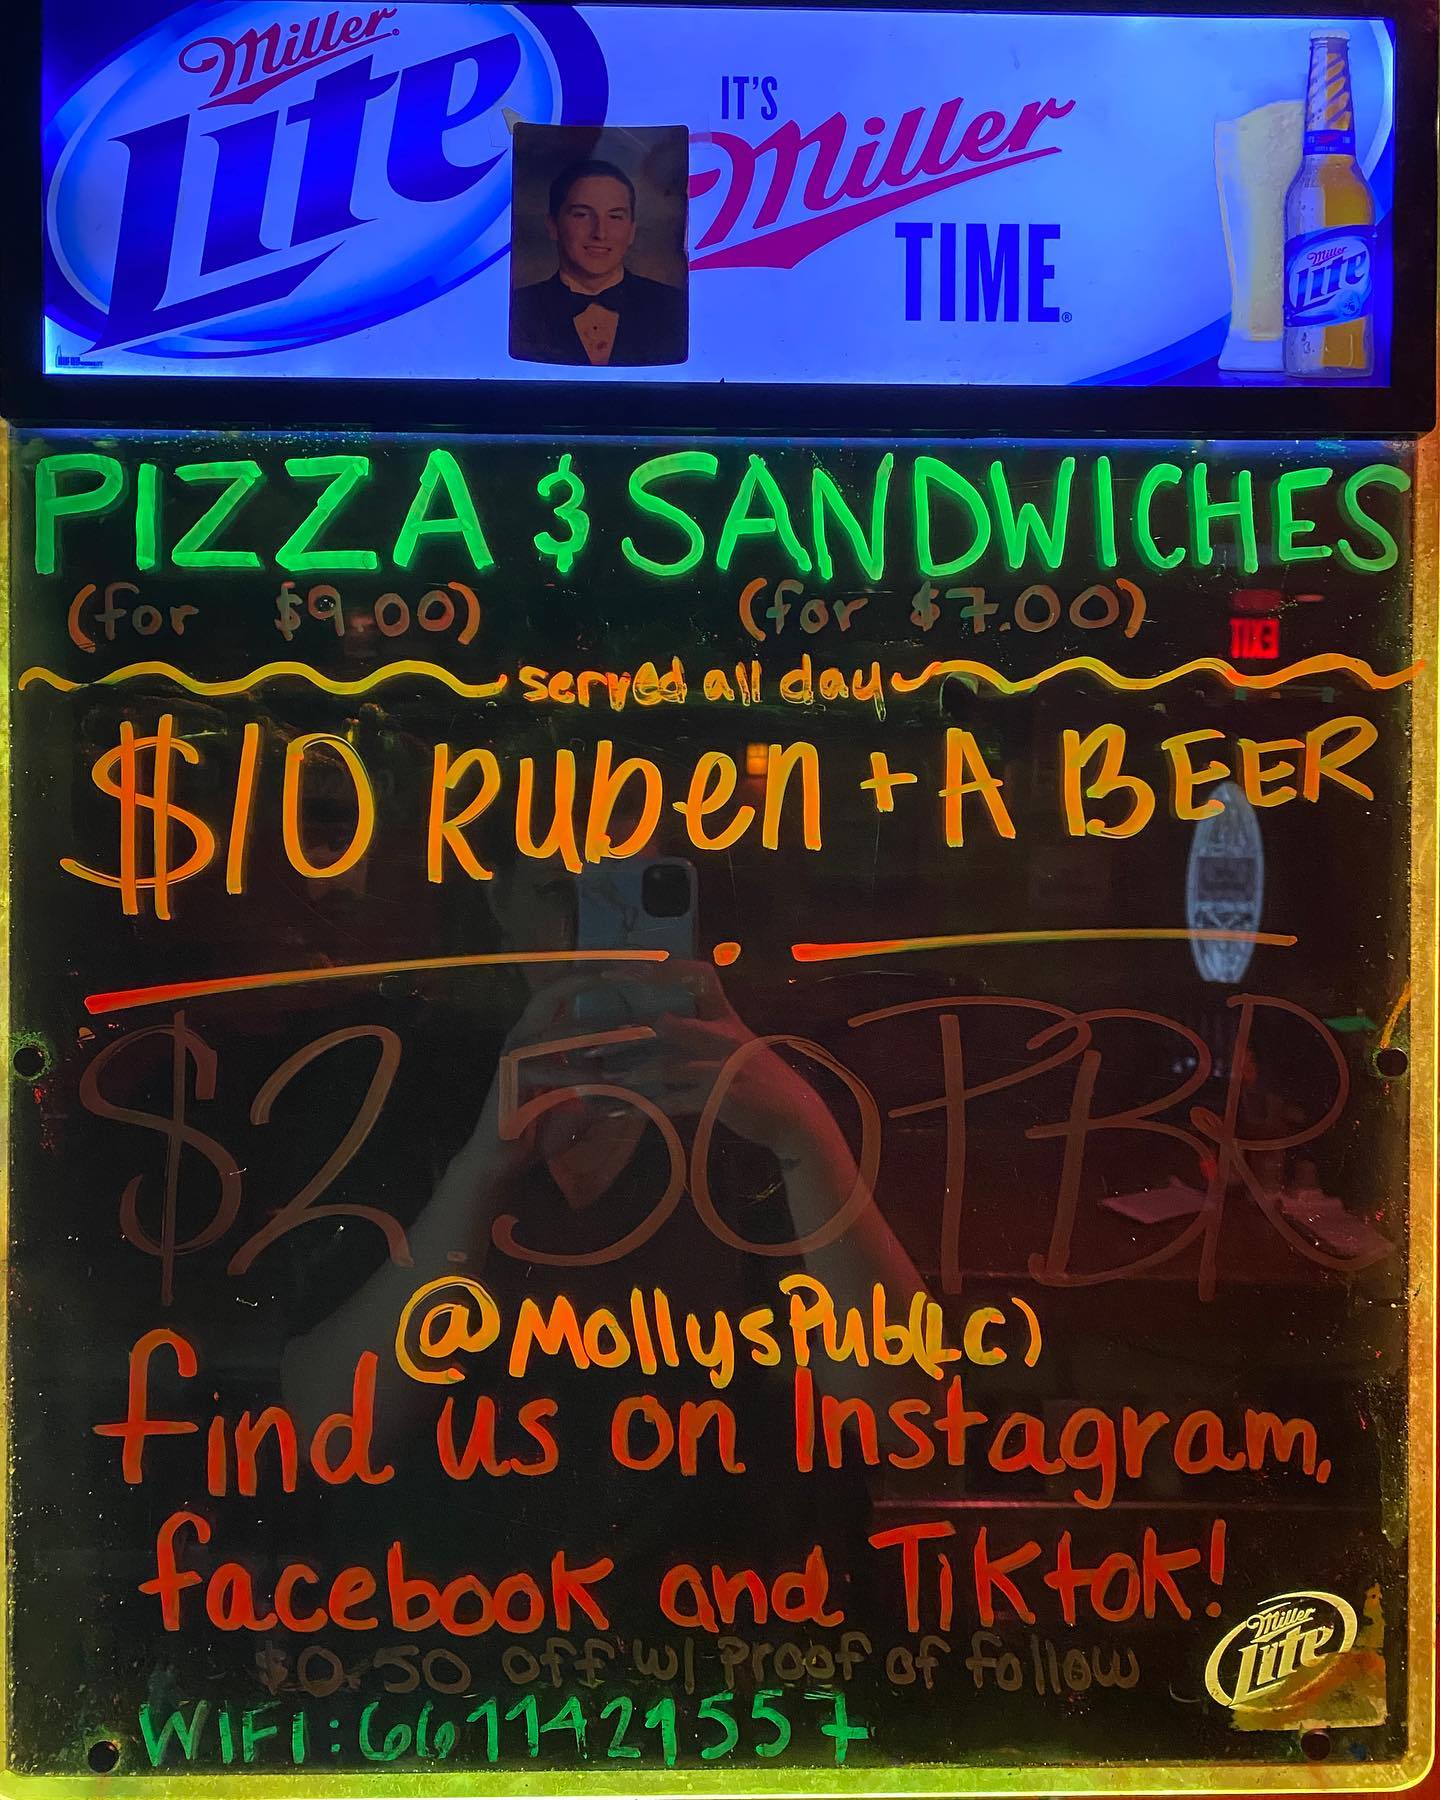 Miller
Lite
IT'S
Miller
TIME®
Miller
Lite
PIZZA & SANDWICHES
(for $9.00) (for $7.00)
EXIT
served all day
$10 Ruben + A BEER
$2.50 PBR
@MollysPub(LC)
find us on Instagram,
facebook and Tiktok!
$0.50 off w/ Proof of follow
Miller
Lite
WIFI: